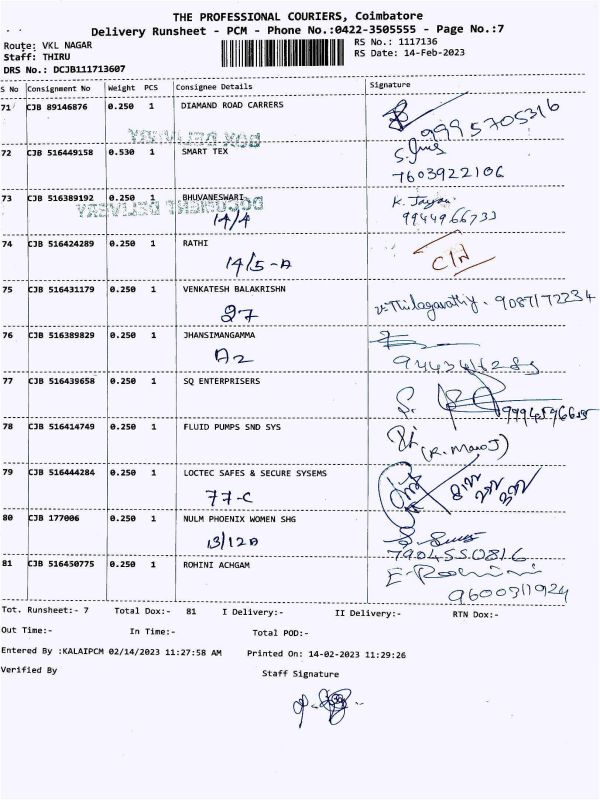 THE PROFESSIONAL COURIERS, Coimbatore
Delivery Runsheet - PCM - Phone No.:0422-3505555 - Page No.:7
Route: VKL NAGAR
RS No.: 1117136
Staff: THIRU
RS Date: 14-Feb-2023
DRS No.: DCJB111713607
S No Consignment No Weight PCS Consignee Details Signature
71 CJB 89146876 0.250 1 DIAMAND ROAD CARRERS
9995705316
BOX DELIVERY
72 CJB 516449158 0.530 1 SMART TEX
7603922106
73 CJB 516389192 0.250 1 BHUVANESWARI K. Jayan
DOCUMENT DELIVERY
14/4 9944966733
74 CJB 516424289 0.250 1 RATHI
14/5-A
75 CJB 516431179 0.250 1 VENKATESH BALAKRISHN
27 V. Thilagavathy. 9087172234
76 CJB 516389829 0.250 1 JHANSIMANGAMMA
A2
77 CJB 516439658 0.250 1 SQ ENTERPRISERS
78 CJB 516414749 0.250 1 FLUID PUMPS SND SYS
(R. Manoj)
79 CJB 516444284 0.250 1 LOCTEC SAFES & SECURE SYSEMS
77-C
80 CJB 177006 0.250 1 NULM PHOENIX WOMEN SHG
13/12A
7904550816
81 CJB 516450775 0.250 1 ROHINI ACHGAM E-Rohini
9600311924
Tot. Runsheet:- 7 Total Dox:- 81 I Delivery:- II Delivery:- RTN Dox:-
Out Time:- In Time:- Total POD:-
Entered By :KALAIPCM 02/14/2023 11:27:58 AM Printed On: 14-02-2023 11:29:26
Verified By Staff Signature